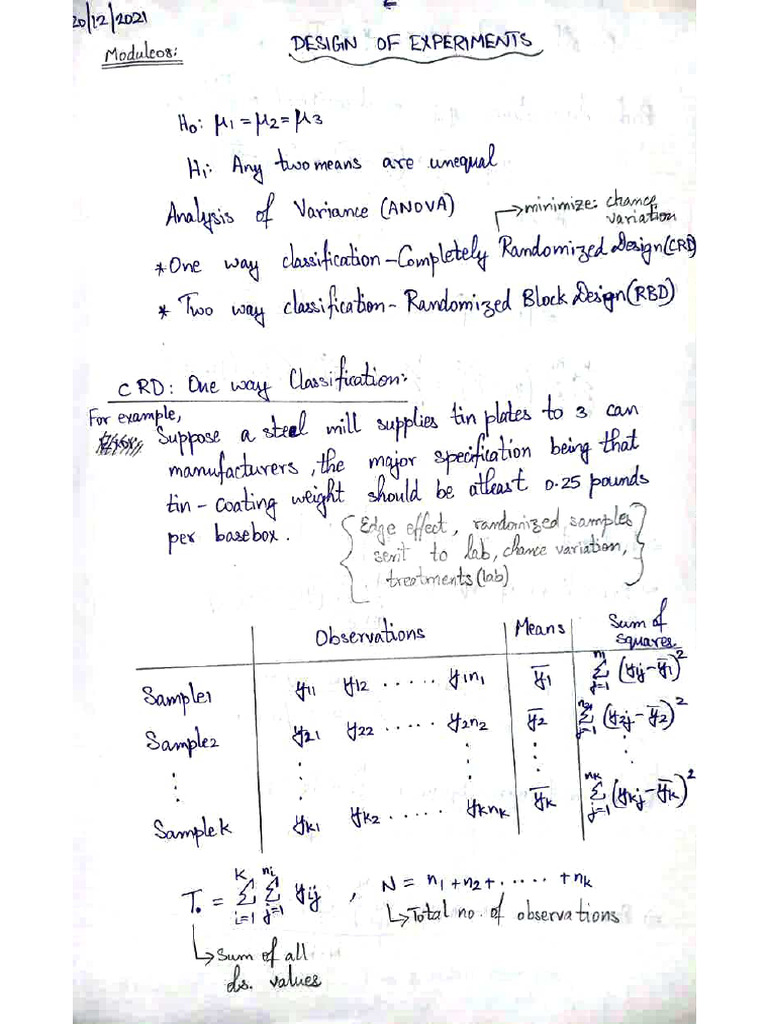 20/12/2021
Module08:
DESIGN OF EXPERIMENTS
H₀: μ₁ = μ₂ = μ₃
H₁: Any two means are unequal
Analysis of Variance (ANOVA)
→ minimize: chance variation
* One way classification - Completely Randomized Design (CRD)
* Two way classification - Randomized Block Design (RBD)
CRD: One way Classification:
For example,
Suppose a steel mill supplies tin plates to 3 can
manufacturers, the major specification being that
tin - coating weight should be atleast 0.25 pounds
per basebox.
{Edge effect, randomized samples
sent to lab, chance variation,
treatments (lab)}
Observations Means Sum of squares
Sample1 y₁₁ y₁₂ ..... y₁n₁ ȳ₁ Σⱼ₌₁ⁿ¹ (y₁ⱼ - ȳ₁)²
Sample2 y₂₁ y₂₂ ..... y₂n₂ ȳ₂ Σⱼ₌₁ⁿ² (y₂ⱼ - ȳ₂)²
⋮ ⋮ ⋮ ⋮ ⋮
Samplek yₖ₁ yₖ₂ ..... yₖnₖ ȳₖ Σⱼ₌₁ⁿᵏ (yₖⱼ - ȳₖ)²
T. = Σᵢ₌₁ᴷ Σⱼ₌₁ⁿⁱ yᵢⱼ , N = n₁ + n₂ + ..... + nₖ
↳ Total no. of observations
↳ Sum of all
values